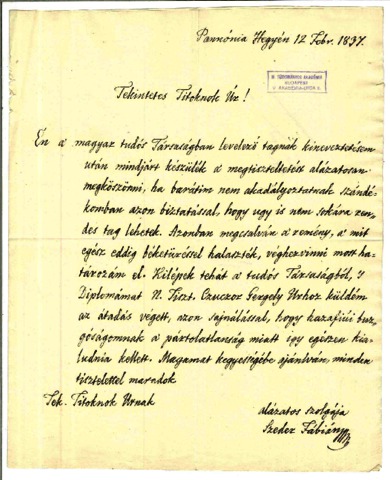 Pannónia Hegyén 12 Febr. 1837.
M. TUDOMÁNYOS AKADÉMIA
BUDAPEST
V. AKADÉMIA-UTCA 2.
Tekintetes Titoknok Úr!
Én a' magyar tudós Társaságban levelező tagnak kineveztetésem
után mindjárt készülék a megtiszteltetést alázatosan
megköszönni, ha barátim nem akadályoztatnak szándé-
komban azon biztatással, hogy ugy is nem sokára ren-
des tag lehetek. Azonban megcsalván a' remény, a mit
egész eddig béketűréssel halaszték, véghezvinni most ha-
tározám el. Kilépek tehát a tudós Társaságból, 's
Diplomámat N. Tiszt. Czuczor Gergely Úrhoz küldém
az átadás végett, azon sajnálással, hogy hazafiúi buz-
góságomnak a pártolatlanság miatt így egészen kia-
ludnia kellett. Magamat kegyességébe ajánlván, minden
tisztelettel maradok
Tek. Titoknok Urnak
alázatos szolgája
Szeder Fábián